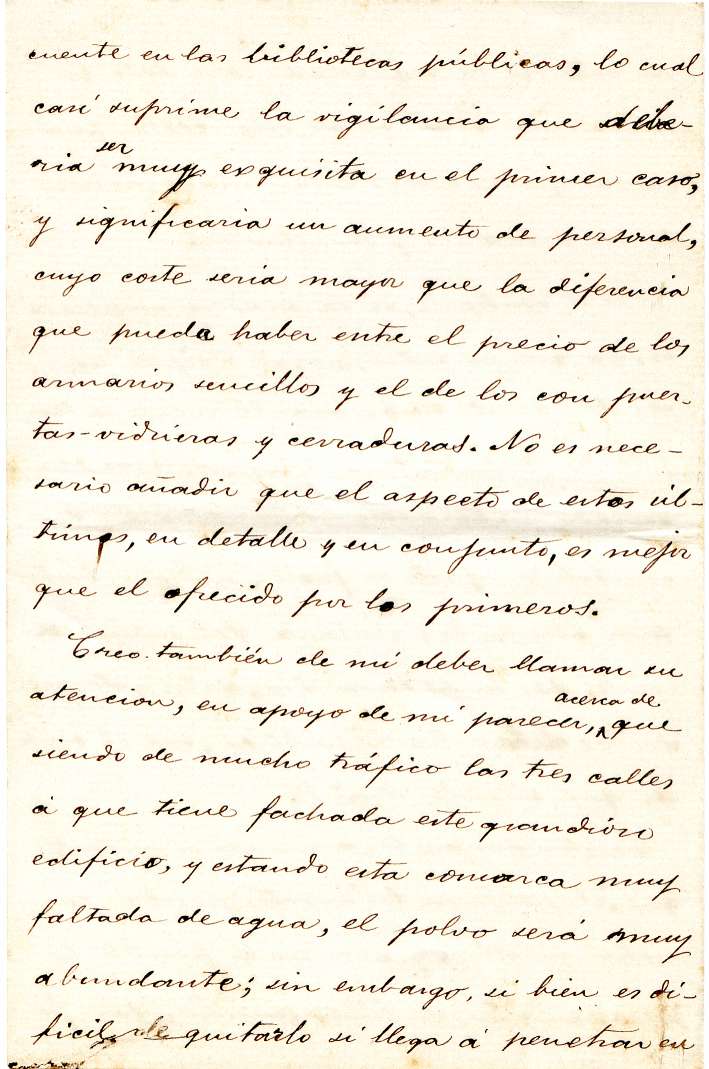 cuente en las bibliotecas públicas, lo cual
casi suprime la vigilancia que debe-
ria ser muy exquisita en el primer caso,
y significaria un aumento de personal,
cuyo coste seria mayor que la diferencia
que pueda haber entre el precio de los
armarios sencillos y el de los con puer-
tas-vidrieras y cerraduras. No es nece-
sario añadir que el aspecto de estos úl-
timos, en detalle y en conjunto, es mejor
que el ofrecido por los primeros.
Creo también de mi deber llamar su
atencion, en apoyo de mi parecer, acerca de que
siendo de mucho tráfico las tres calles
á que tiene fachada este grandioso
edificio, y estando esta comarca muy
faltada de agua, el polvo será muy
abundante; sin embargo, si bien es di-
ficil de quitarlo si llega á penetrar en